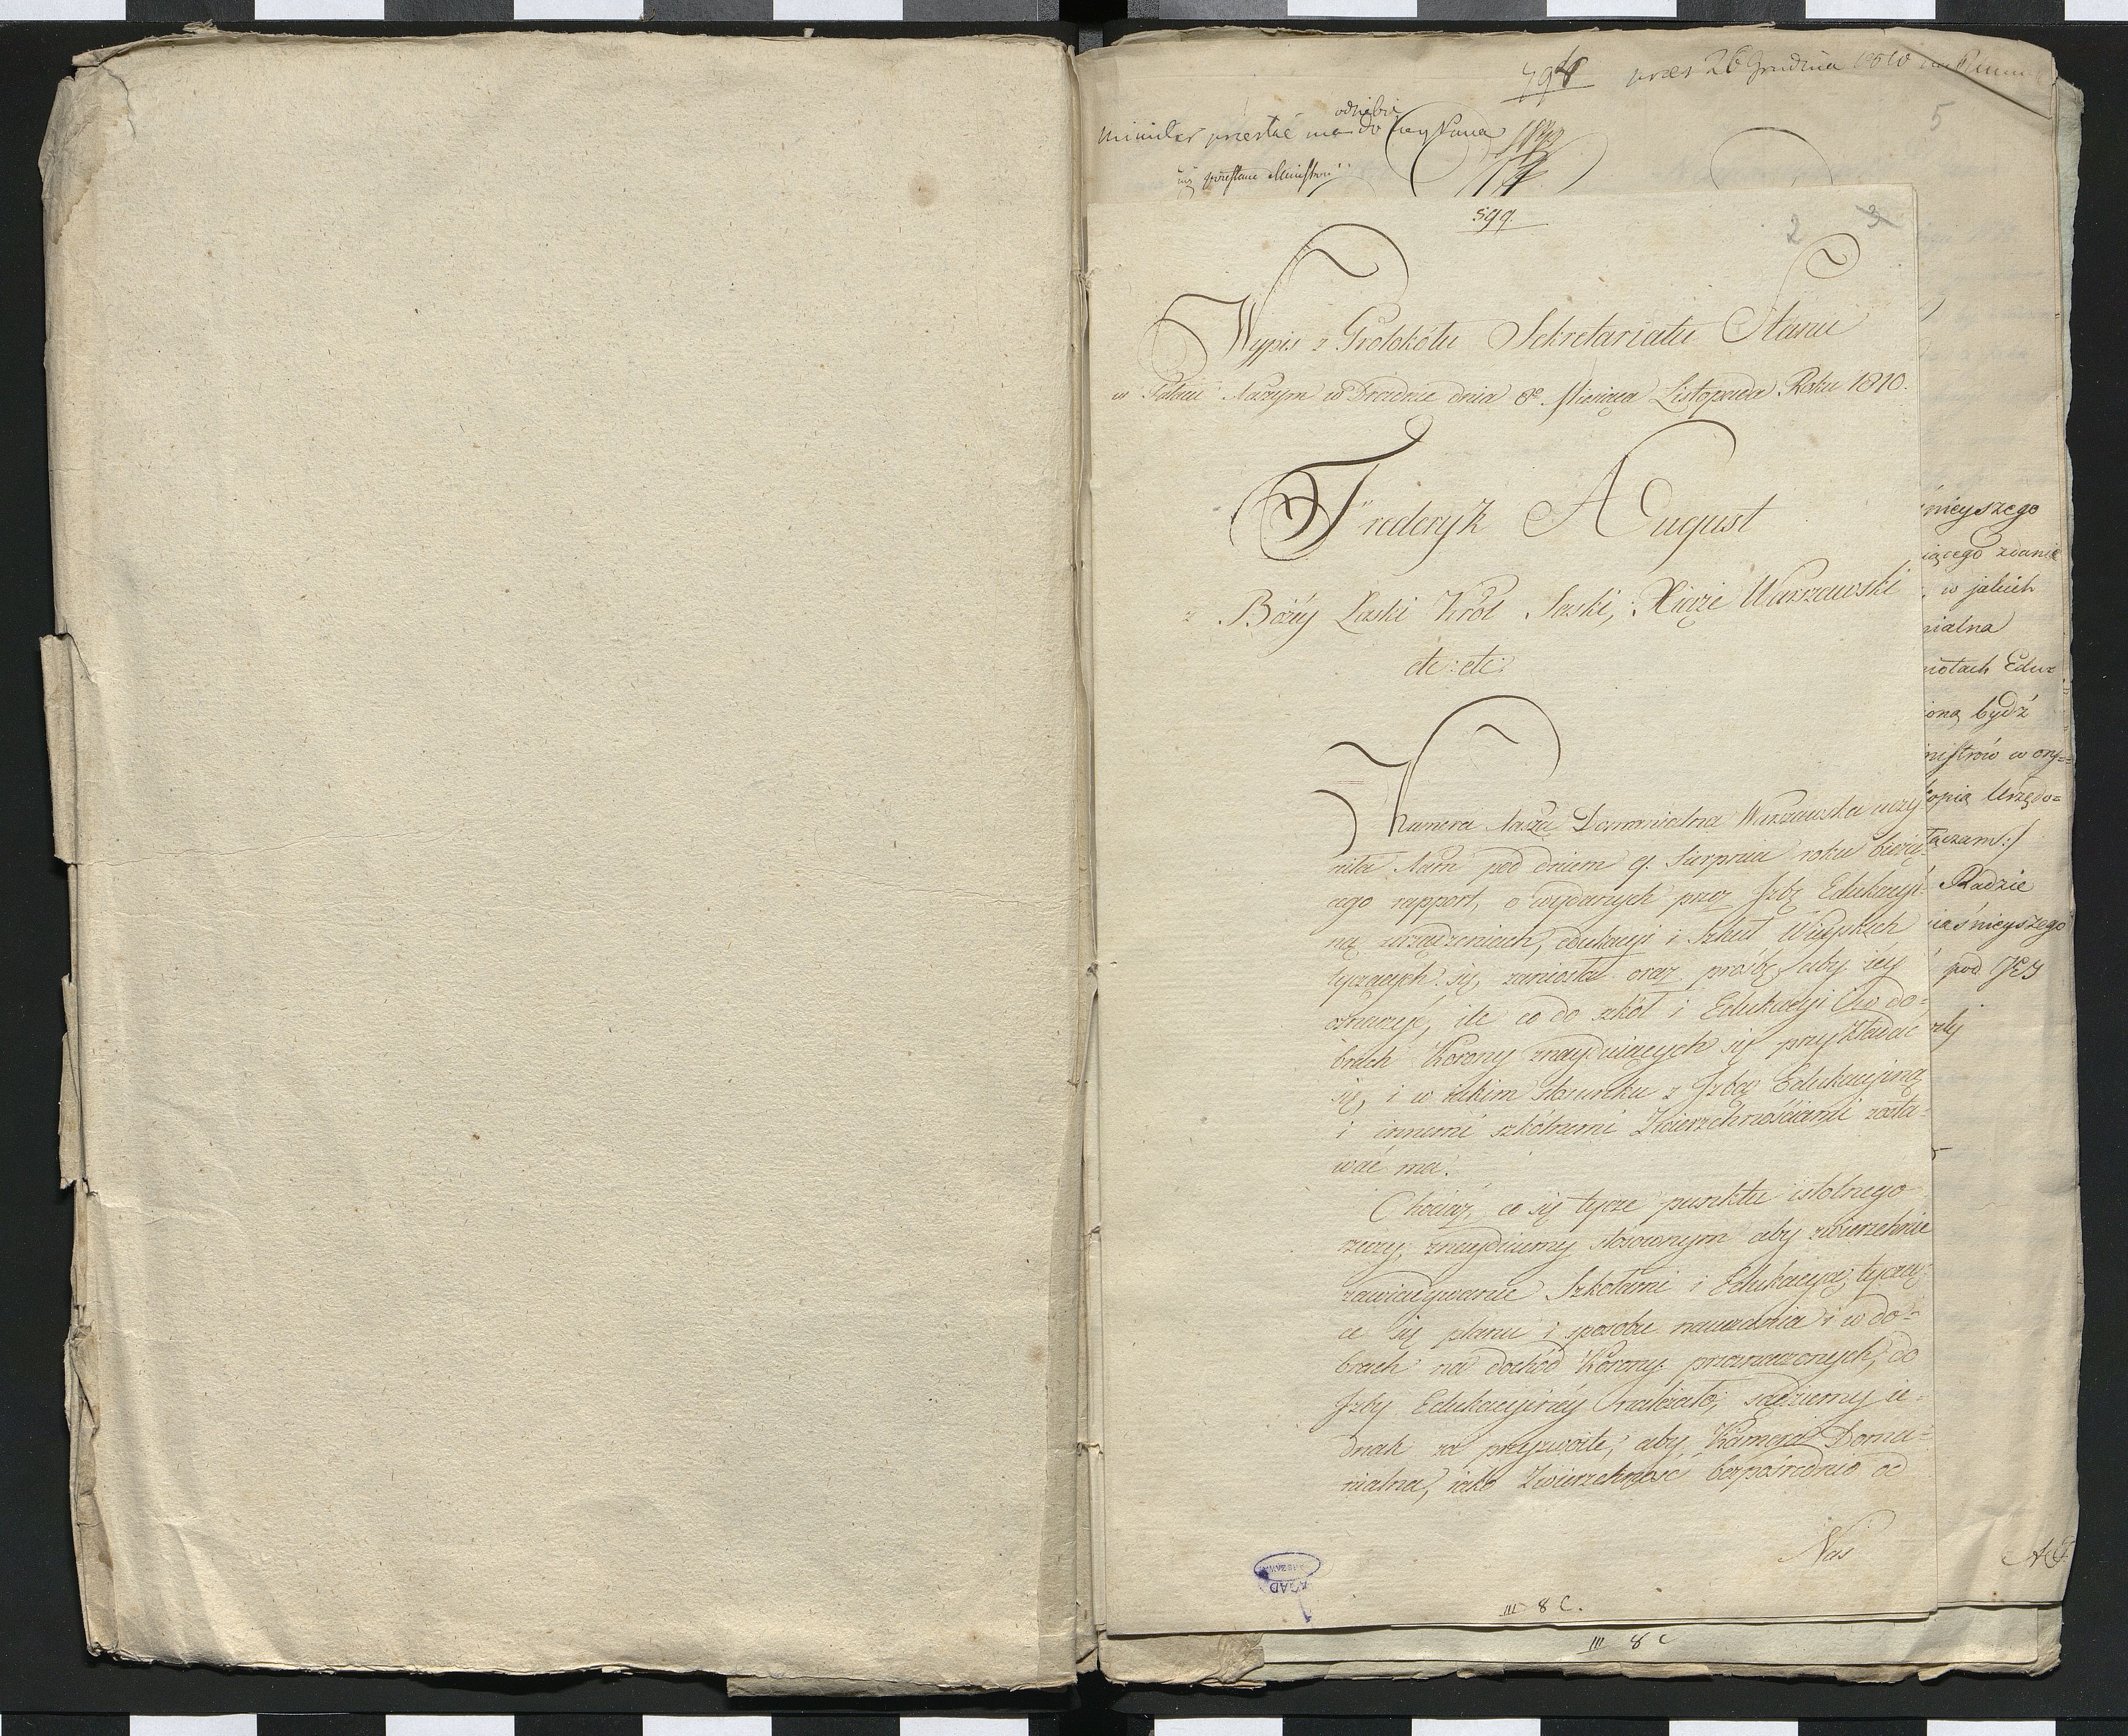 798 26 Grudnia 1810
5
odzielnie
Minister przesłać ma do
przesłane Ministrowi
599.
2 3
Wypis z Protokółu Sekretariatu Stanu
w Pałacu Naszym w Dreznie dnia 8o Miesiąca Listopada Roku 1810.
Frederyk August
z Bożéy Łaski Król Saski, Xiąże Warszawski
etc: etc:
Kamera Nasza Dominialna Warszawska uczy-
niła Nam pod dniem 9. Sierpnia roku bieżą-
cego rapport, o wydanych przez Jzbę Edukacyi-
ną zarządzeniach, edukacyi i Szkół Wieyskich
tyczących się, zaniosła oraz prośbę aby iéy
oznaczyć, ile co do szkół i Edukacyi w do-
brach Korony znayduiących się przykładać
się, i w iakim stosunku z Jzbą Edukacyiną
i innemi szkólnemi Zwierzchnościami zosta-
wać ma.
Chociaż, co się tycze punktu istotnego
rzeczy, znayduiemy stosownym aby zwierzchnie
zawiadywanie Szkołami i Edukacyą, tyczą-
ce się planu i sposobu nauczania i w do-
brach na dochód Korony przeznaczonych, do
Jzby Edukacyinéy należało; sądziemy ie-
dnak za przyzwoite, aby Kamera Domi-
nialna, iako Zwierzchność bezpośrednio od
Nas
AGAD
III 8 C.
III 8 C
nieyszego
iącego zdanie
w jakich
nialna
miotach Edu-
iona bydź
nistrów w ory-
kopią Urzędo-
łączam:/
Radzie
iaśnieyszego
pod JEJ